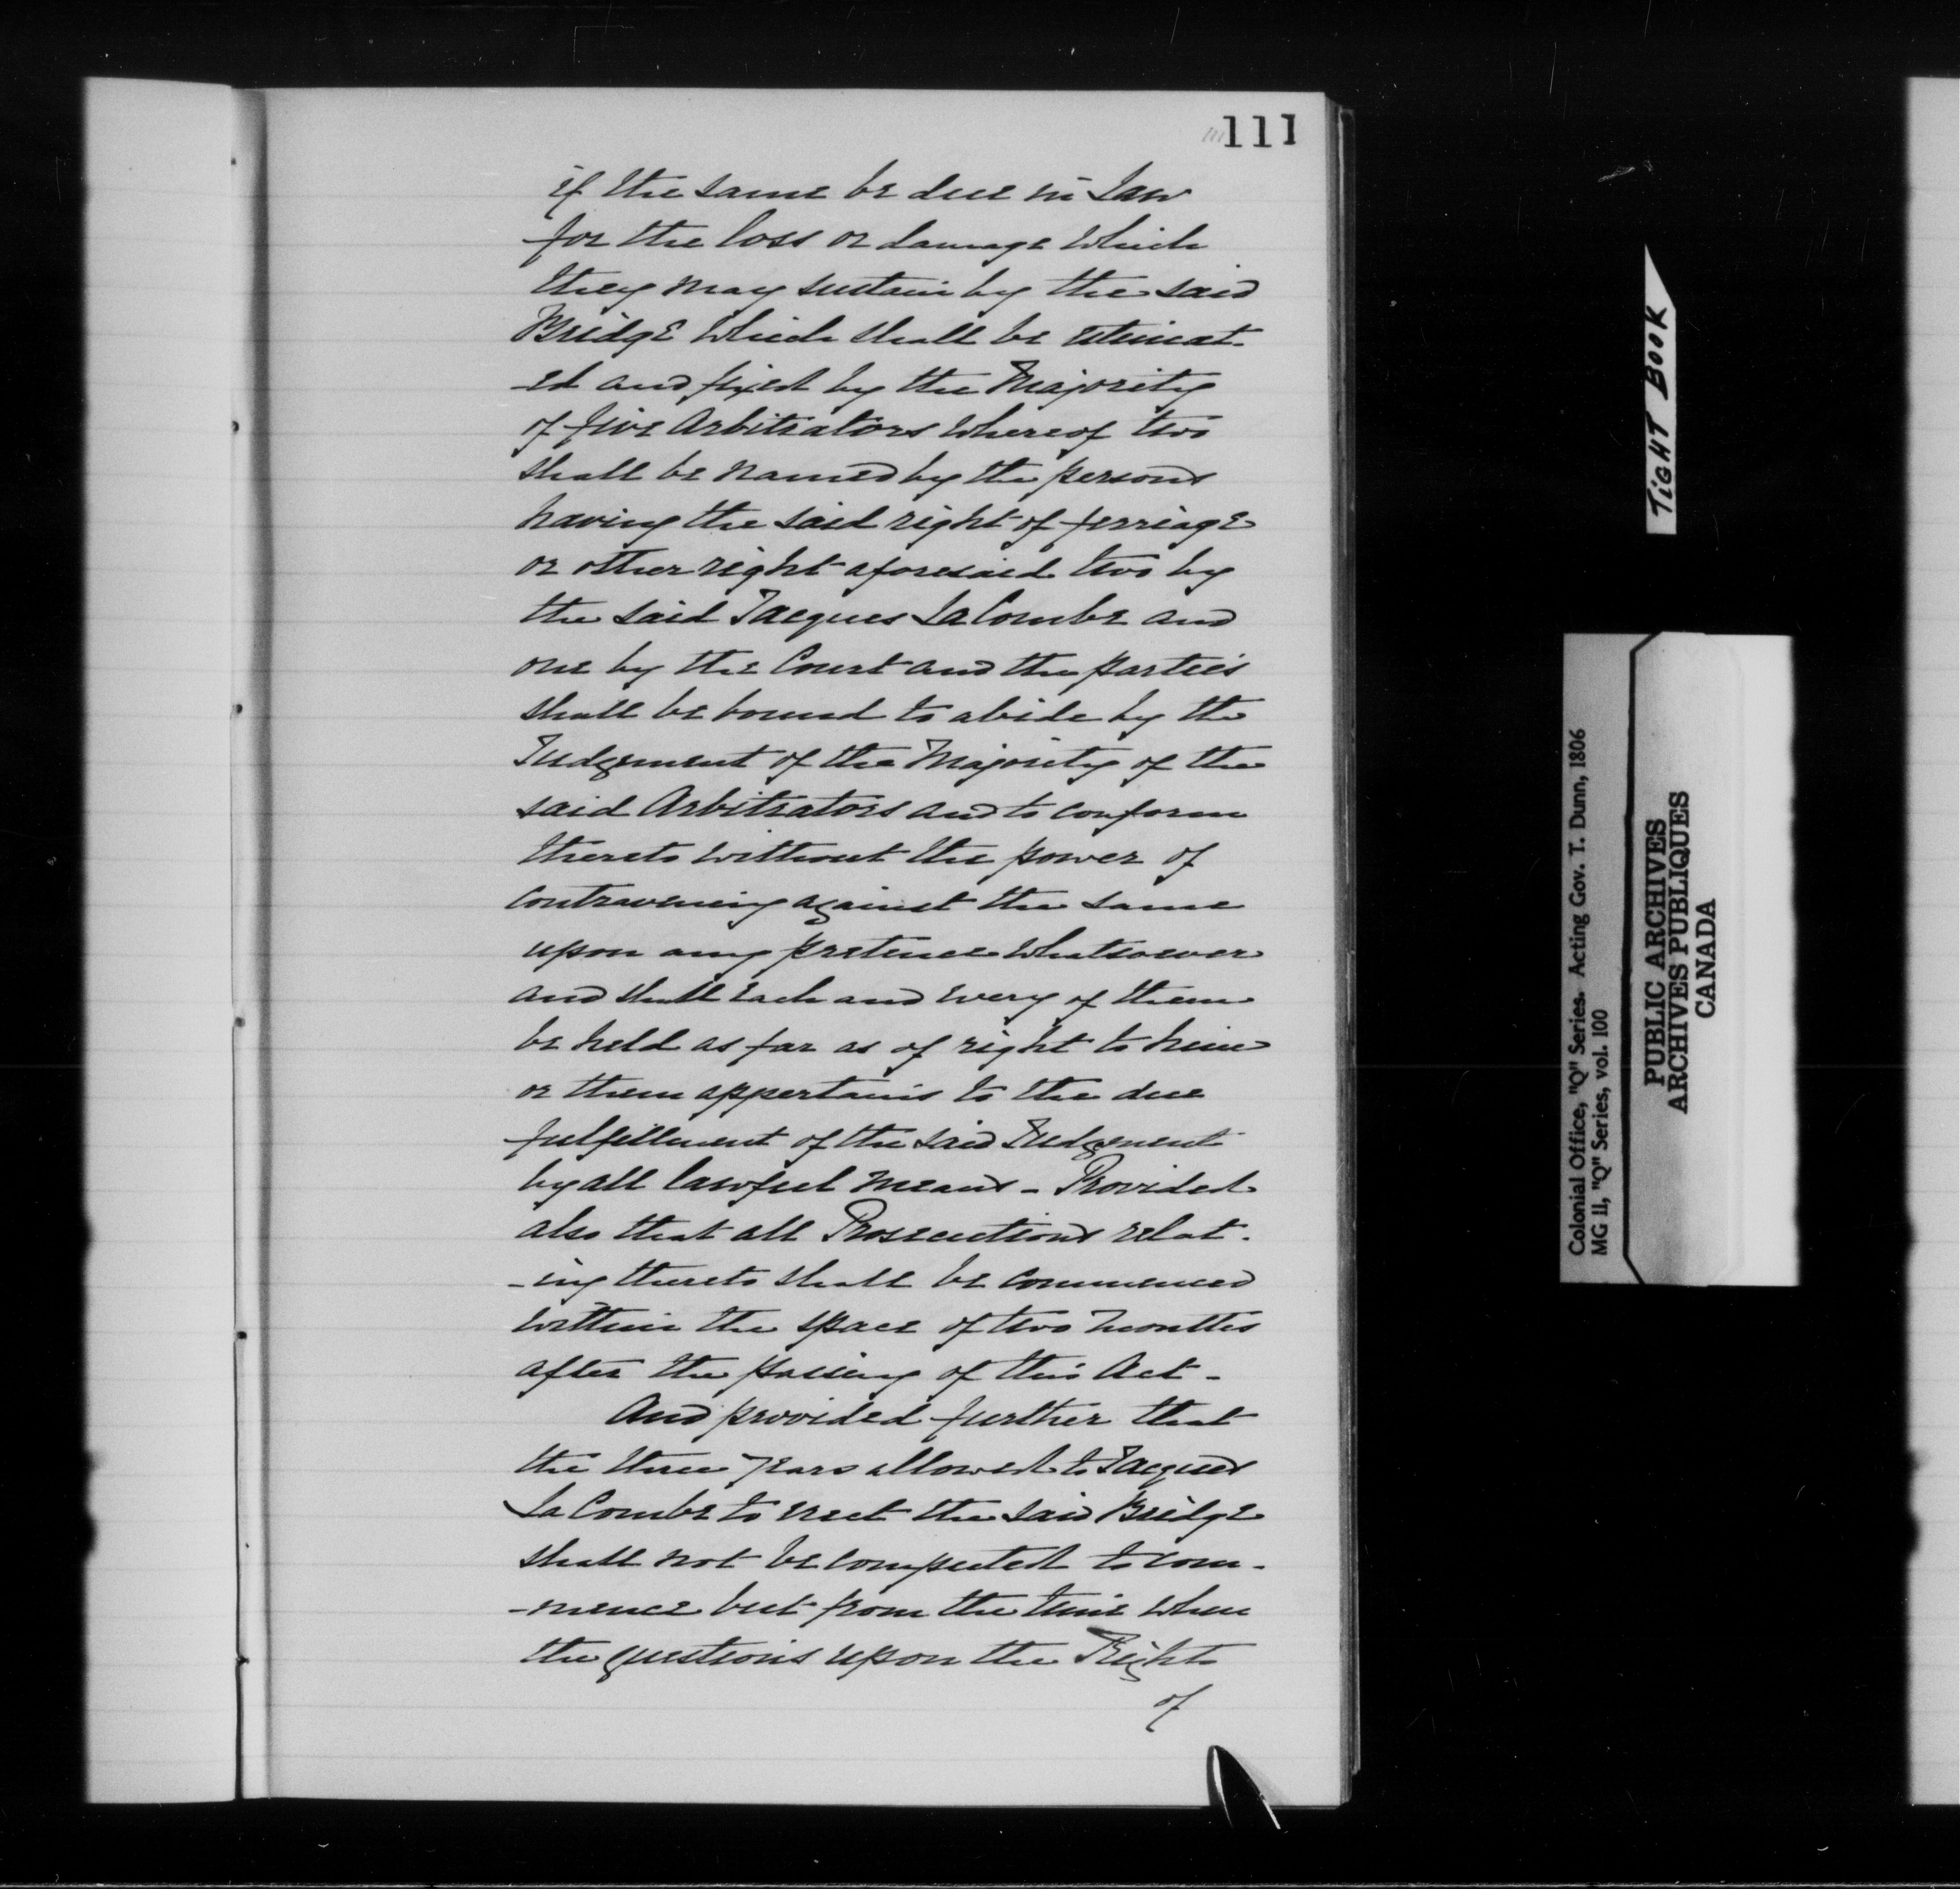 111
if the same be due in Law
for the loss or damage which
they may sustain by the said
Bridge which shall be estimat-
-ed and fixed by the Majority
of five Arbitrators whereof two
shall be named by the persons
having the said right of ferriage
or other right aforesaid two by
the said Jacques La Combe and
one by the Court and the parties
shall be bound to abide by the
Judgement of the Majority of the
said Arbitrators and to conform
thereto without the power of
contravening against the same
upon any pretence whatsoever
and shall each and every of them
be held as far as of right to him
or them appertains to the due
fulfillment of the said Judgement
by all lawful means - Provided
also that all Prosecutions relat-
-ing thereto shall be commenced
within the space of two months
after the passing of this Act -
And provided further that
the three years allowed to Jacques
La Combe to erect the said Bridge
shall not be computed to com-
-mence but from the time when
the questions upon the Rights
of
TIGHT BOOK
Colonial Office, "Q" Series. Acting Gov. T. Dunn, 1806
MG 11, "Q" Series, vol. 100
PUBLIC ARCHIVES
ARCHIVES PUBLIQUES
CANADA